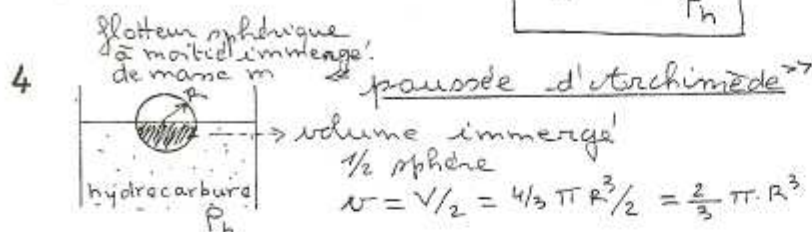 ρh
flotteur sphérique
à moitié immergé
de masse m
4
<< poussée d'Archimède >>
R
--> volume immergé
1/2 sphère
hydrocarbure
v = V/2 = 4/3 π R³/2 = 2/3 π. R³
ρh